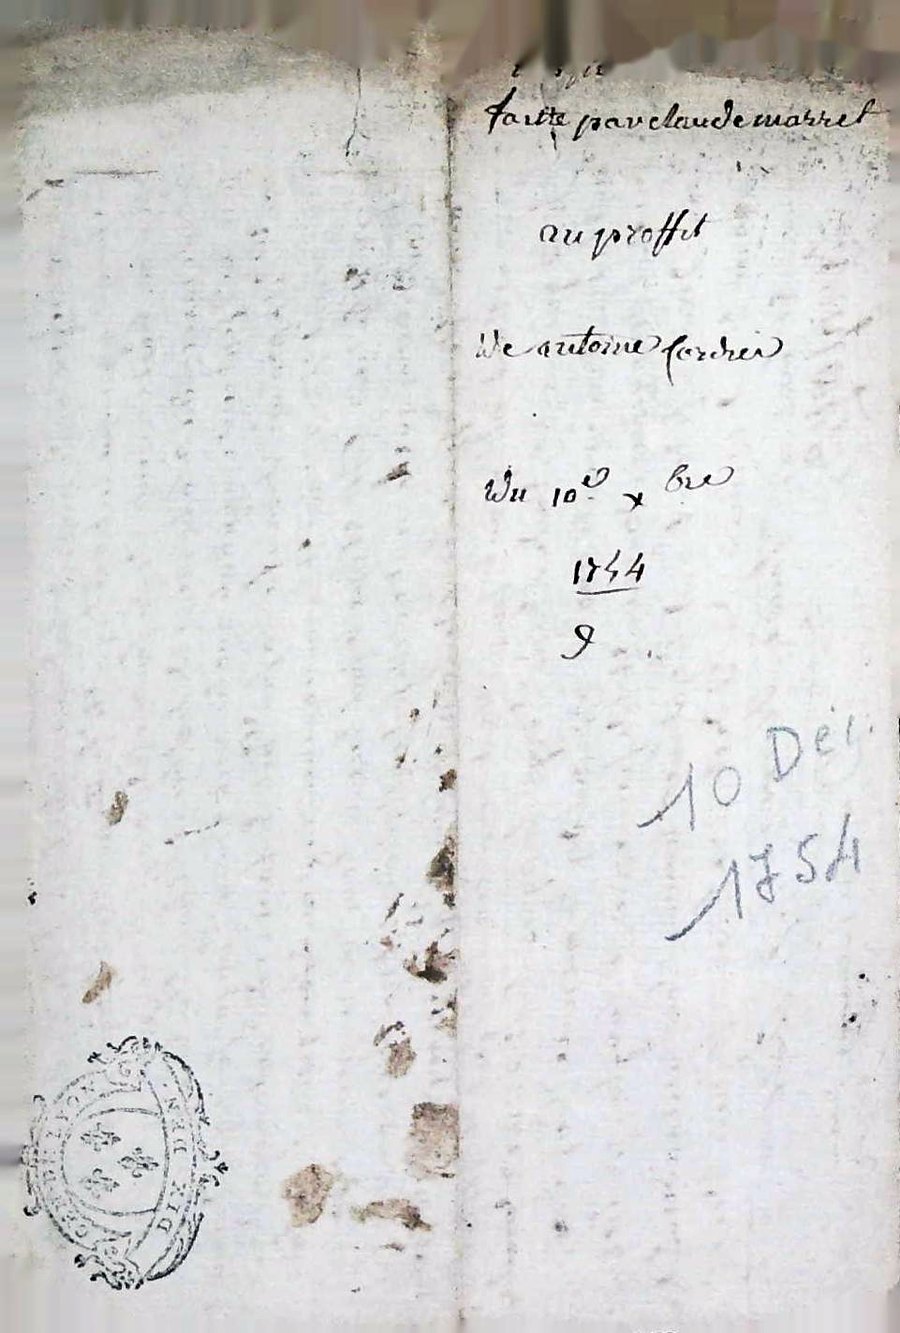 faitte par claude marrel
au proffit
De antoine Cordier
Du 10e xbre
1754
10 Déc.
1754
GEN DE LYON
DIX DEN